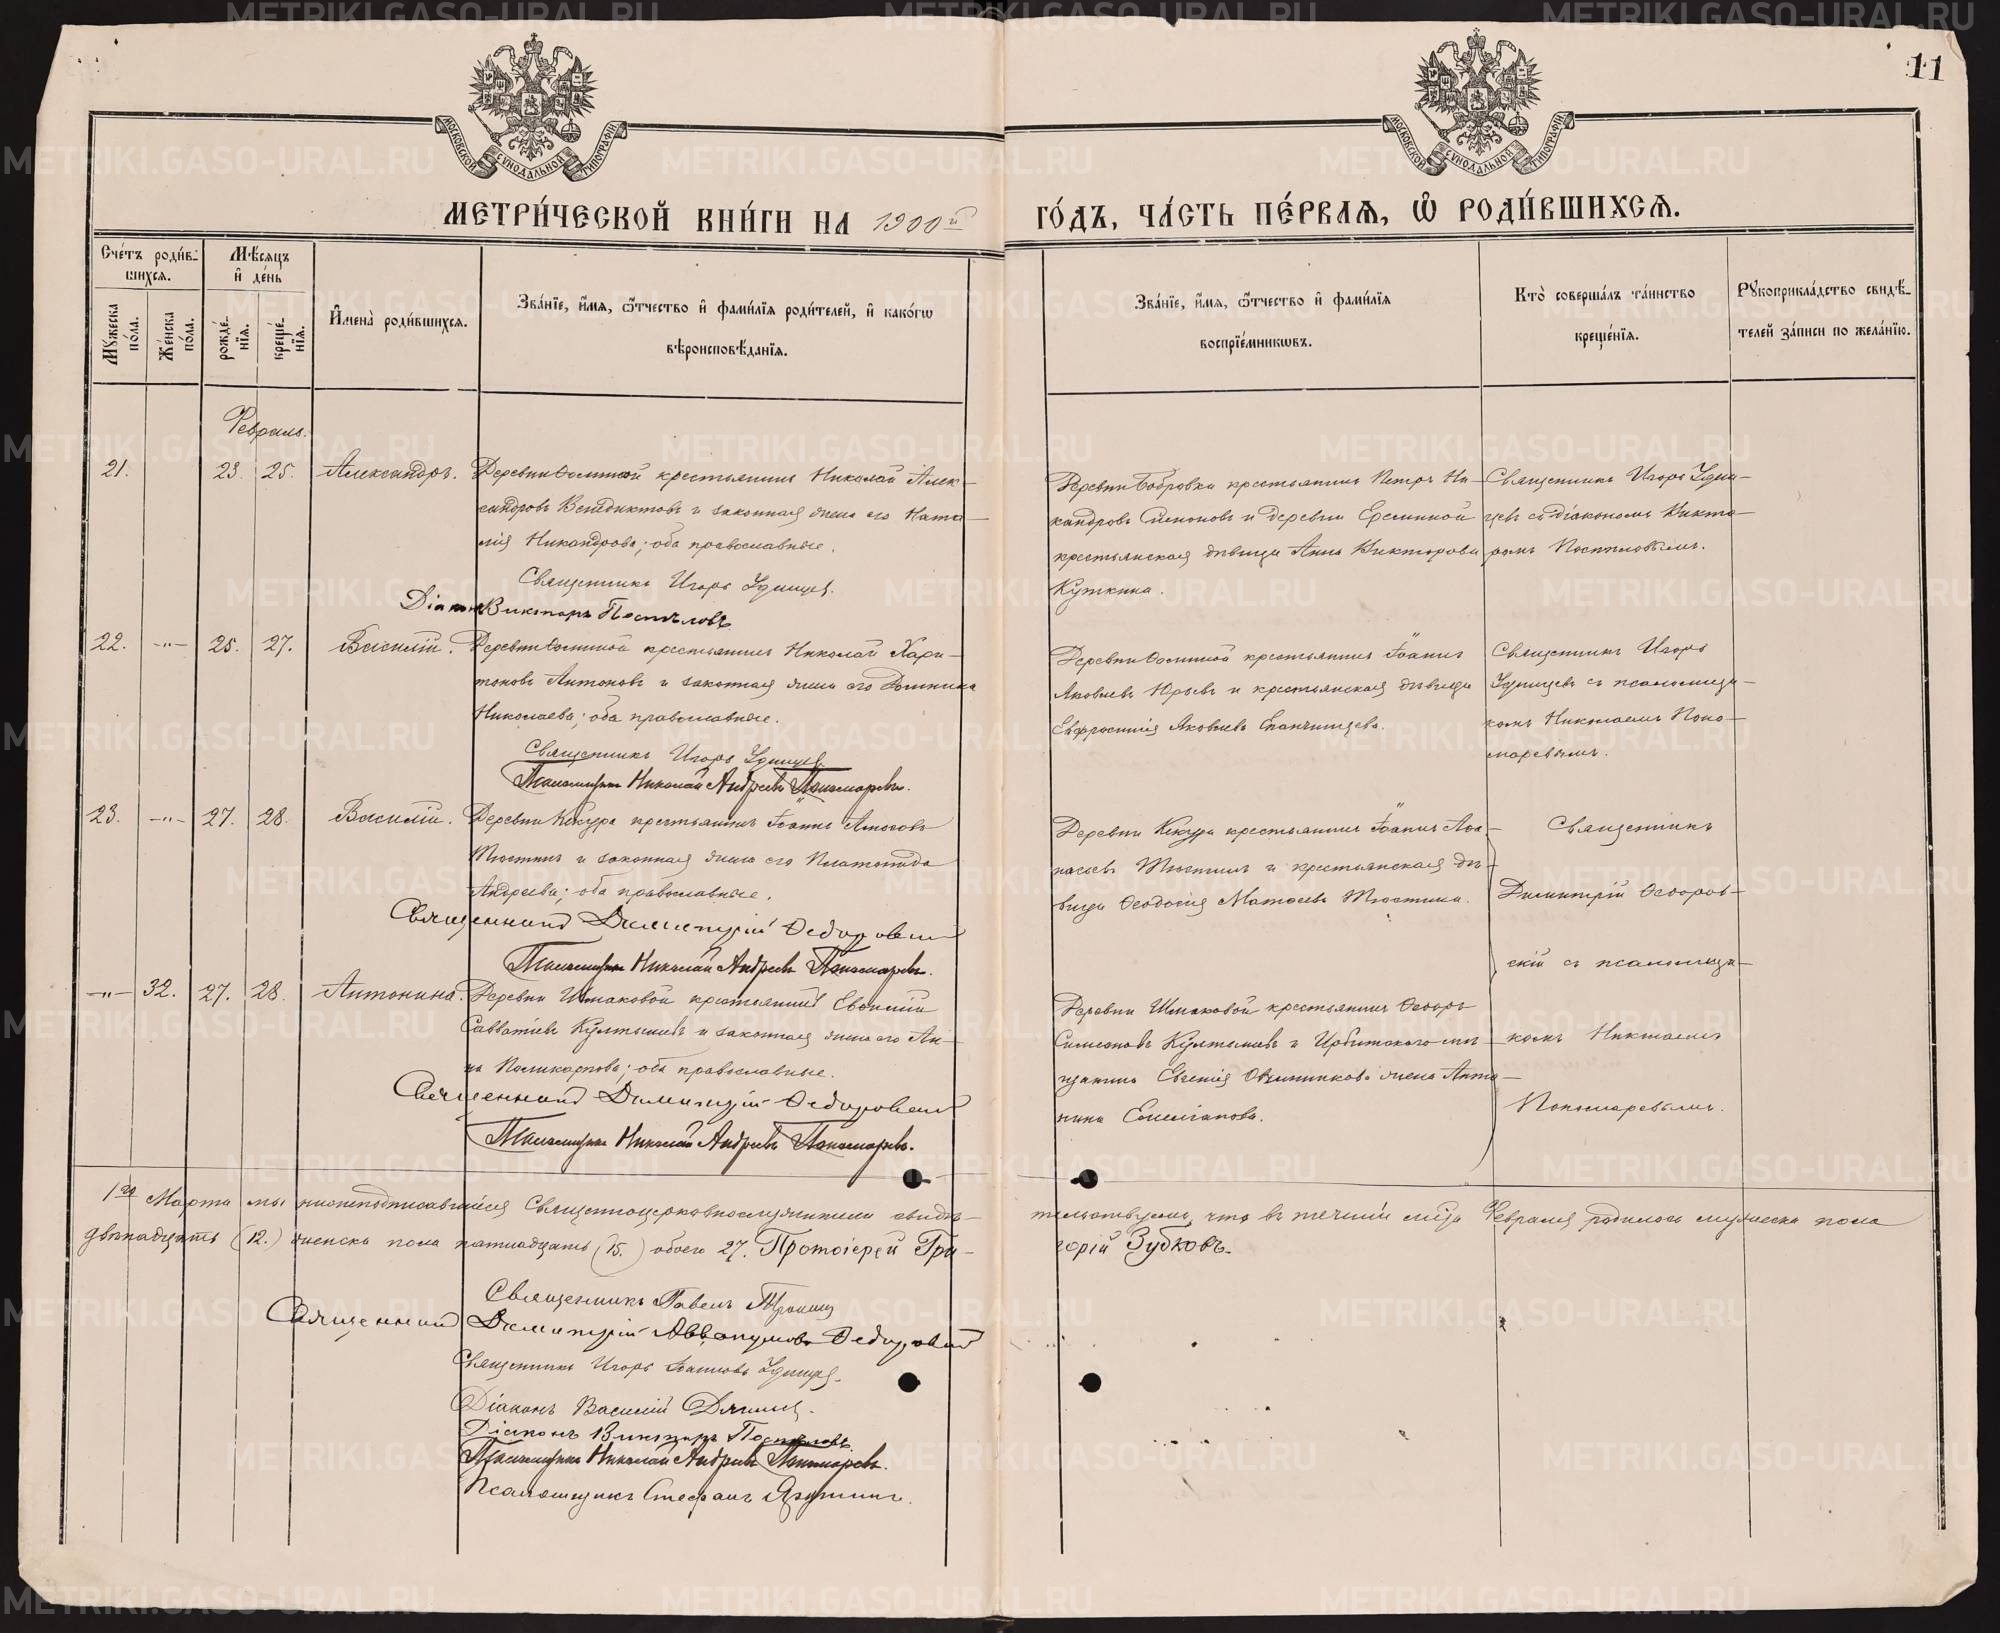 11
МОСКОВСКОЙ СѴНОДАЛЬНОЙ ТИПОГРАФІИ
МОСКОВСКОЙ СѴНОДАЛЬНОЙ ТИПОГРАФІИ
МЕТРИ́ЧЕСКОЙ КНИ́ГИ НА 1900й ГО́ДЪ, ЧА́СТЬ ПЕ́РВАѦ, Ѡ҆ РОДИ́ВШИХСѦ.
Сче́тъ роди́в-
шихсѧ.
Мѣ́сѧцъ
и҆ де́нь
Мꙋ́жеска по́ла.
Же́нска по́ла.
рожде́-нїѧ.
креще́-нїѧ.
И҆мена̀ роди́вшихсѧ.
Зва́нїе, и҆́мѧ, ѻ҆́тчество и҆ фами́лїѧ роди́телей, и҆ како́гѡ
вѣроисповѣ́данїѧ.
Зва́нїе, и҆́мѧ, ѻ҆́тчество и҆ фами́лїѧ
воспрїе́мникѡвъ.
Кто̀ соверша́лъ та́инство
креще́нїѧ.
Рꙋкоприкла́дство свидѣ́-
телей за́писи по жела́нїю.
Февраль.
21. 23. 25. Александръ. Деревни Фоминой крестьянинъ Николай Алек-
сандровъ Венедиктовъ и законная жена его Ната-
лія Никандрова; оба православные.
Священникъ Игорь Удинцев.
Діаконъ Викторъ Поспѣловъ.
Деревни Бобровки крестьянинъ Петръ Ни-
кандровъ Симоновъ и деревни Ереминой
крестьянская дѣвица Анна Викторова
Куткина.
Священникъ Игорь Удин-
цевъ съ діакономъ Викто-
ромъ Поспѣловымъ.
22. -"- 25. 27. Василій. Деревни Фоминой крестьянинъ Николай Хари-
тоновъ Антоновъ и законная жена его Домника
Николаева; оба православные.
Священникъ Игорь Удинцев
Псаломщикъ Николай Андреевъ Пономаревъ.
Деревни Фоминой крестьянинъ Іоаннъ
Яковлевъ Юрьевъ и крестьянская дѣвица
Евфросинія Яковлева Епанчинцева.
Священникъ Игорь
Удинцевъ съ псаломщи-
комъ Николаемъ Поно-
маревымъ.
23. -"- 27. 28. Василій. Деревни Кекура крестьянинъ Іоаннъ Амосовъ
Тюстинъ и законная жена его Платонида
Андреева; оба православные.
Священникъ Димитрій Федоровскій
Псаломщикъ Николай Андреевъ Пономаревъ.
Деревни Кекура крестьянинъ Іоаннъ Аѳа-
насьевъ Тюстинъ и крестьянская дѣ-
вица Ѳеодосія Матѳеева Тюстина.
Священникъ
Димитрій Ѳеодоров-
скій съ псаломщи-
комъ Николаемъ
Пономаревымъ.
-"- 32. 27. 28. Антонина. Деревни Шмаковой крестьянинъ Евѳимій
Савватіевъ Култышевъ и законная жена его Ан-
на Поликарпова; оба православные.
Священникъ Димитрій Федоровскій
Псаломщикъ Николай Андреевъ Пономаревъ.
Деревни Шмаковой крестьянинъ Ѳеодоръ
Симеоновъ Култышевъ и Ирбитскаго мѣ-
щанина Евгенія Овчинникова жена Анто-
нина Емельянова.
1го Марта мы нижеподписавшіеся Священноцерковнослужители свидѣ-
тельствуемъ, что въ теченіи м-ца Февраля родилось мужеска пола
двѣнадцать (12.) женска пола пятнадцать (15.) обоего 27. Протоіерей Гри-
горій Зубковъ.
Священникъ Павелъ
Священникъ Димитрій Аввакумовъ Федоровскій
Священникъ Игорь Іоанновъ Удинцев.
Діаконъ Василій
Діаконъ Викторъ Поспѣловъ.
Псаломщикъ Николай Андреевъ Пономаревъ.
Псаломщикъ Стефанъ
METRIKI.GASO-URAL.RU